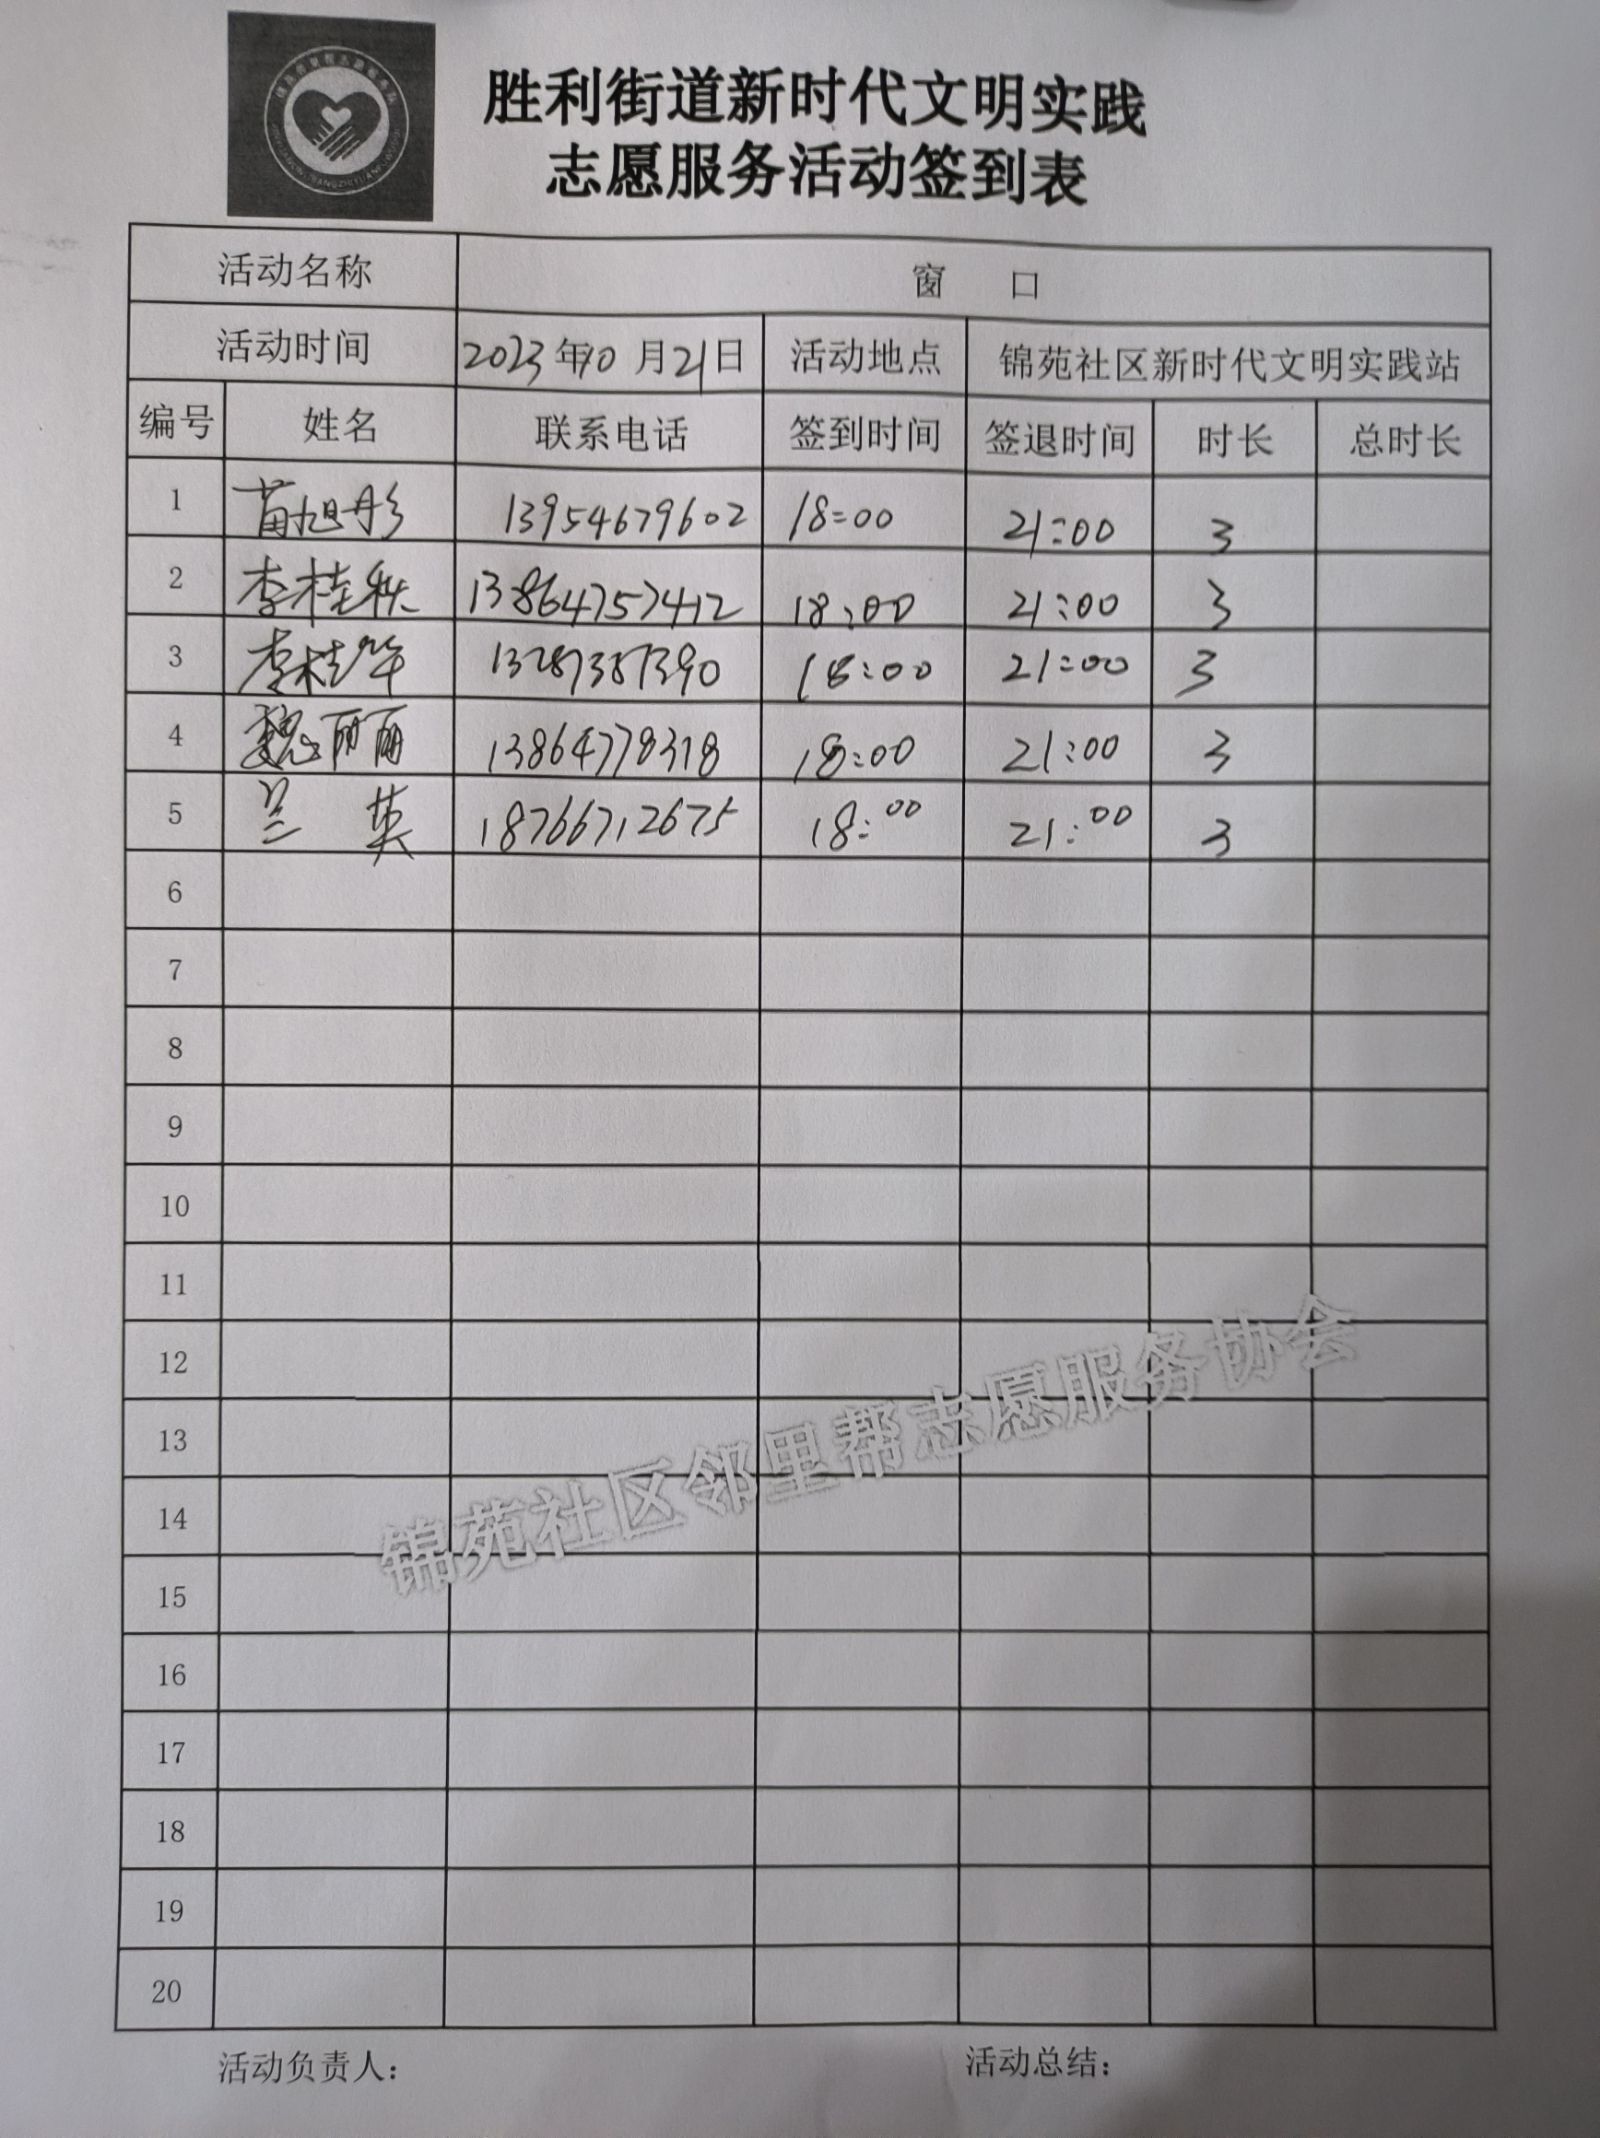 胜利街道新时代文明实践
志愿服务活动签到表
活动名称 窗 口
活动时间 2023年10月21日 活动地点 锦苑社区新时代文明实践站
编号 姓名 联系电话 签到时间 签退时间 时长 总时长
1 苗旭彤 13954679602 18:00 21:00 3
2 李桂秋 13864757412 18:00 21:00 3
3 李桂华 13287387390 18:00 21:00 3
4 魏丽丽 13864778318 18:00 21:00 3
5 兰英 18766712675 18:00 21:00 3
6
7
8
9
10
11
12
13
14
15
16
17
18
19
20
锦苑社区邻里帮志愿服务协会
活动负责人： 活动总结：